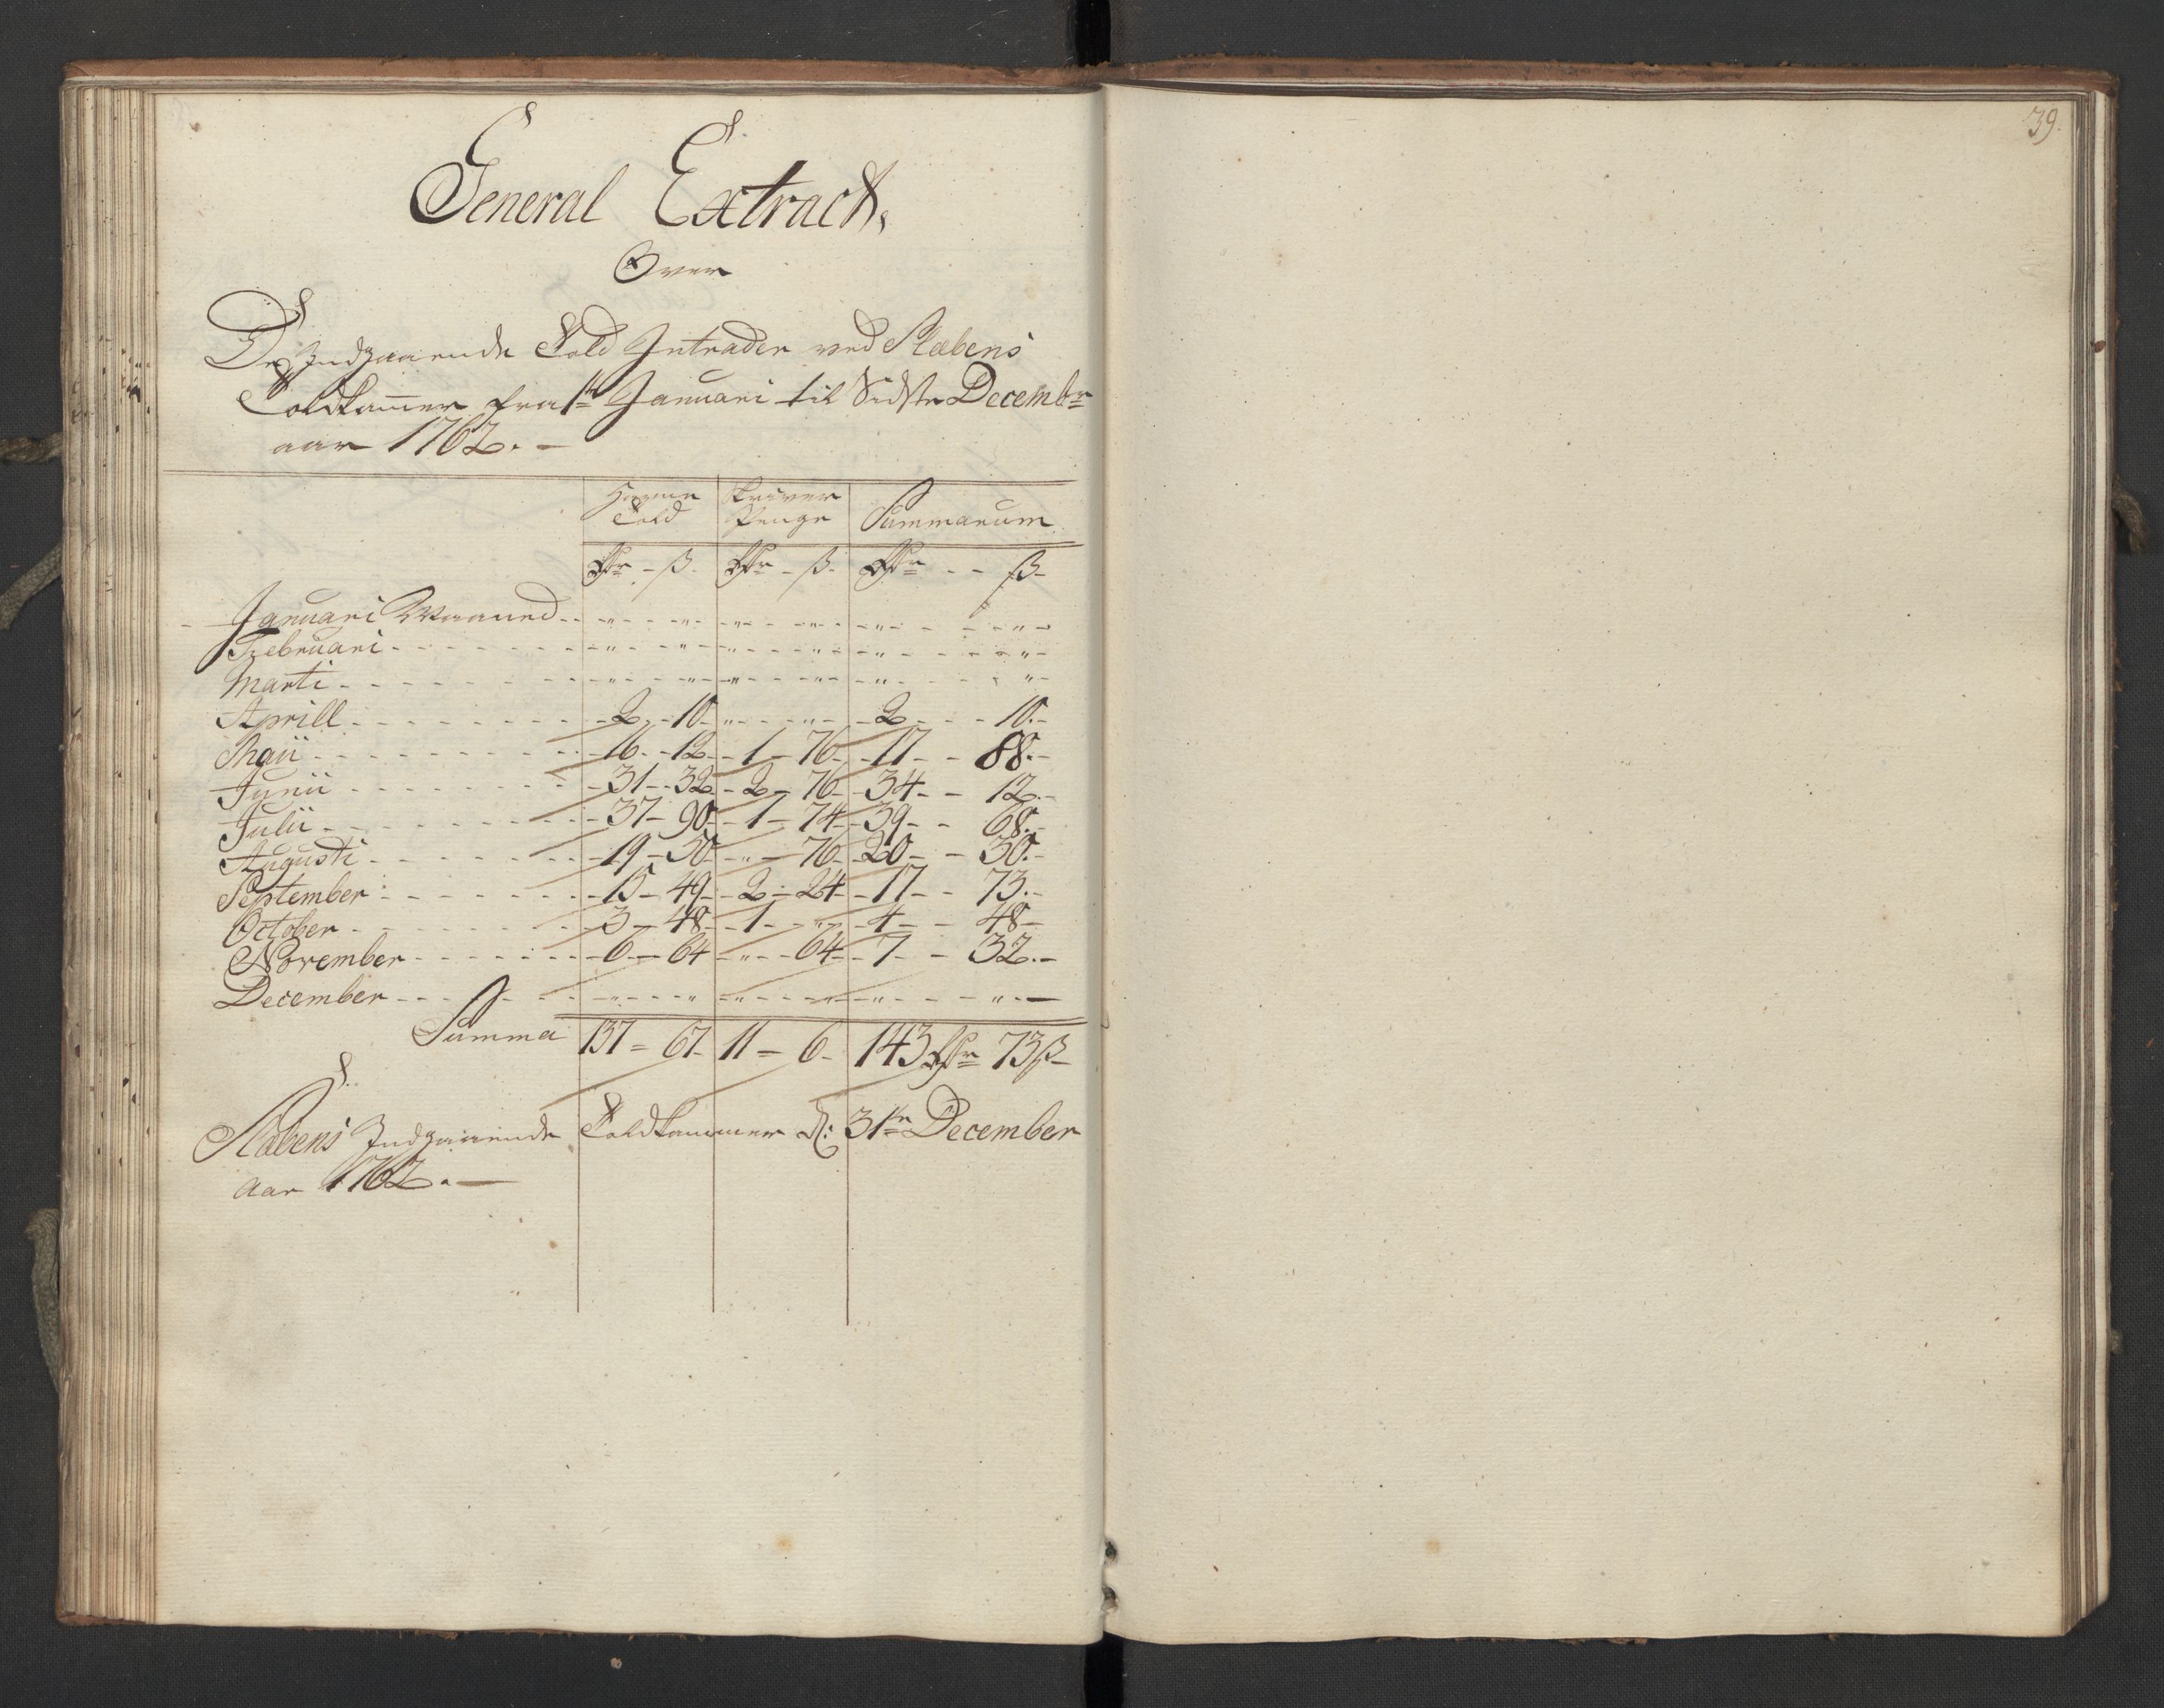 39.
General Extract,
Over
De Indgaaende Told Intrader ved Stabens
Toldkamer fra 1te Januari til Sidste Decembr
aar 1762. -
Told Skriver Penge Summarum
Rdr - ß. Rdr - ß. Rdr - - ß -
Januari Maaned - - " - - " - - " - - " - - " - - "
Februari - - " - - " - - " - - " - - " - - "
Marti - - " - - " - - " - - " - - " - - "
Aprill - - 2 - 10 - " - - " - 2 - - 10. -
Maii - - 16 - 12 - 1 - 76 - 17 - - 88. -
Junii - - 31 - 32 - 2 - 76 - 34 - - 12. -
Julii - - 37 - 90 - 1 - 74 - 39 - - 68. -
Augusti - - 19 - 50 - " - 76 - 20 - - 30. -
September - - 15 - 49 - 2 - 24 - 17 - - 73. -
October - - 3 - 48 - 1 - " - 4 - - 48 -
November - - 6 - 64 - " - 64 - 7 - - 32. -
December - - " - - " - - " - - " - - " - - "
Summa 137 - 67 - 11 - 6 - 143 Rdr 73 ß -
Stabens Indgaaende Toldkammer d: 31te December
Aar 1762. -